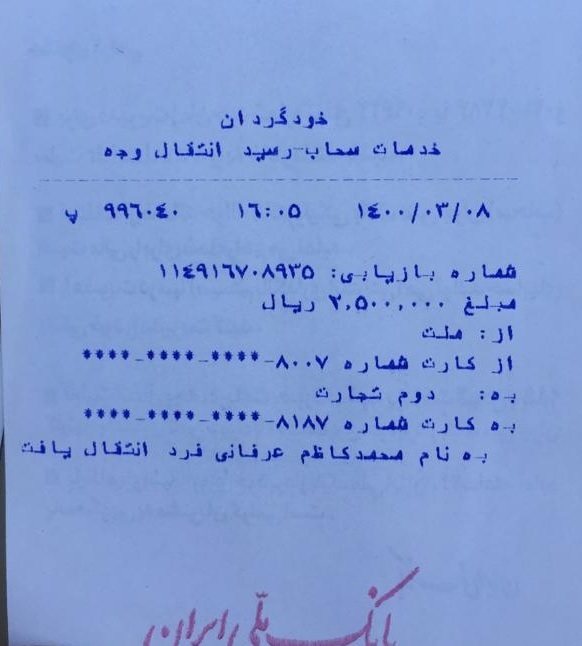 خودگردان
خدمات سحاب-رسید انتقال وجه
۱۴۰۰/۰۳/۰۸ ۱۶:۰۵ ۹۹۶۰۴۰ پ
شماره بازیابی: ۱۱۴۹۱۶۷۰۸۹۳۵
مبلغ ۲,۵۰۰,۰۰۰ ریال
از: ملت
از کارت شماره ۸۰۰۷-****-****-****
به: دوم تجارت
به کارت شماره ۸۱۸۷-****-****-****
به نام محمدکاظم عرفانی فرد انتقال یافت
بانک ملی ایران